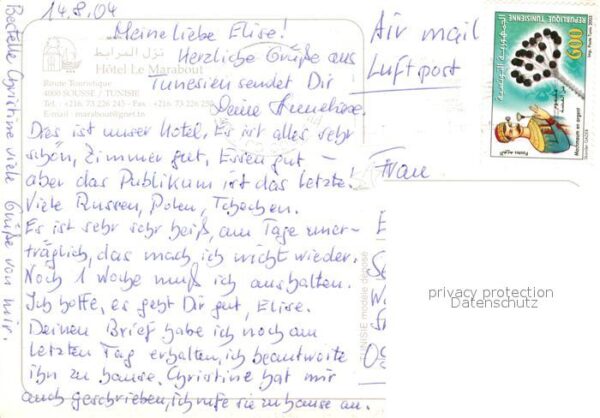 14.8.04
Meine liebe Elise!
Herzliche Grüße aus
Tunesien sendet Dir
Deine Annelore.
Dies ist unser Hotel. Es ist alles sehr
schön, Zimmer gut, Essen gut –
aber das Publikum ist das Letzte!
Viele Russen, Polen, Tschechen.
Es ist sehr sehr heiß, am Tage uner-
träglich, das mach ich nicht wieder.
Noch 1 Woche muß ich aushalten.
Ich hoffe, es geht Dir gut, Elise.
Deinen Brief habe ich noch am
letzten Tag erhalten, ich beantworte
ihn zu hause. Christine hat mir
auch geschrieben, ich rufe sie zu hause an.
Bestelle Christine viele Grüße von mir.
نزل المرابط
Hôtel Le Marabout
Route Touristique
4000 SOUSSE / TUNISIE
Tel.: +216. 73 226 245 - Fax +216 73 226
E.mail : marabout@gnet.tn
Air mail
Luftpost
Frau
TUNISIE modèle déposé
REPUBLIQUE TUNISIENNE
الجمهورية التونسية
600
2003
Machmoum en argent
privacy protection
Datenschutz